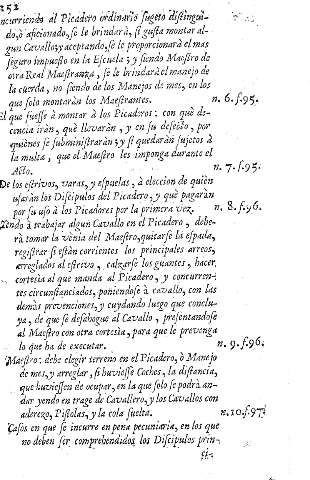 252
ncurriendo al Picadero ordinario sugeto distingui-
do, ò aficionado, se le brindarà, si gusta montar al-
gun Cavallo; y aceptando, se le proporcionarà el mas
seguro impuesto en la Escuela; y siendo Maestro de
otra Real Maestranza, se le brindarà el manejo de
la cuerda, no siendo de los Manejos de mes, en los
que solo montaràn los Maestrantes. n. 6. f. 95.
El que fuesse à montar à los Picaderos: con què de-
cencia iràn, què llevaràn, y en su defecto, por
quiènes se subministraràn; y si quedaràn sujetos à
la multa, que el Maestro les imponga durante el
Acto. n. 7. f. 95.
De los estrivos, varas, y espuelas, à eleccion de quièn
usaràn los Discipulos del Picadero, y què pagaràn
por su uso à los Picadores por la primera vez. n. 8. f. 96.
Yendo à trabajar algun Cavallo en el Picadero, debe-
rà tomar la vènia del Maestro, quitarse la espada,
registrar si estàn corrientes los principales arreos,
arreglados al estrivo, calzarse los guantes, hacer
cortesìa al que manda al Picadero, y concurren-
tes circunstanciados, poniendose à cavallo, con las
demàs prevenciones, y cuydando luego que conclu-
ya, de que se desahogue al Cavallo, presentandose
al Maestro con otra cortesìa, para que le prevenga
lo que ha de executar. n. 9. f. 96.
Maestro: debe elegir terreno en el Picadero, ò Manejo
de mes, y arreglar, si huviesse Coches, la distancia,
que huviessen de ocupar, en la que solo se podrà an-
dar yendo en trage de Cavallero, y los Cavallos con
aderezo, Pistolas, y la cola suelta. n. 10. f. 97.
Casos en que se incurre en pena pecuniaria, en los que
no deben ser comprehendidos los Discipulos prin-